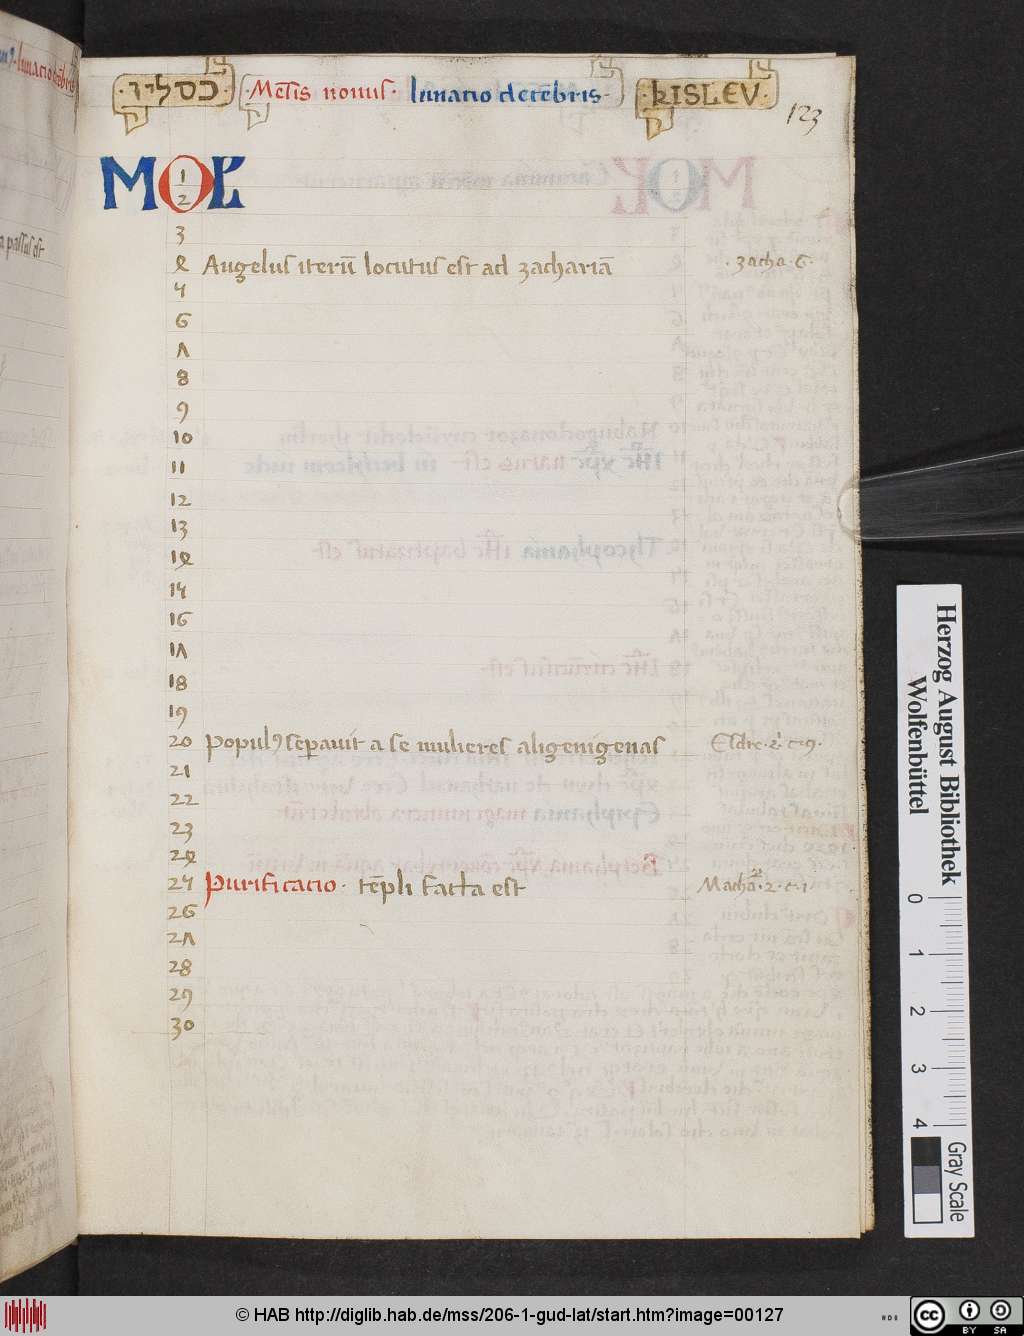 כסליו · Mēsis nonus · lunatio decēbris · KISLEV ·
123
MOL
1
2
3
4 Angelus iterū locutus est ad zachariā · zacha · 6 ·
5
6
7
8
9
10
11
12
13
14
15
16
17
18
19
20 populꝰ separauit a se mulieres aligenigenas Esdre · 2 · c · 9 ·
21
22
23
24
25 Purificatio · tēpli facta est Macha · 2 · c · 1 ·
26
27
28
29
30
a passus est
Herzog August Bibliothek
Wolfenbüttel
0 1 2 3 4
Gray Scale
© HAB http://diglib.hab.de/mss/206-1-gud-lat/start.htm?image=00127
cc BY SA